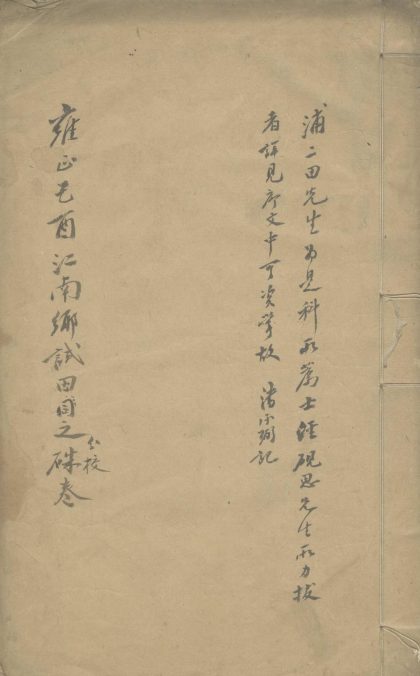 浦二田先生为是科所荐士经砚思先生所力拔
者详见序文中可资掌故 潘承弼记
雍正己酉江南乡试田同之分校硃卷